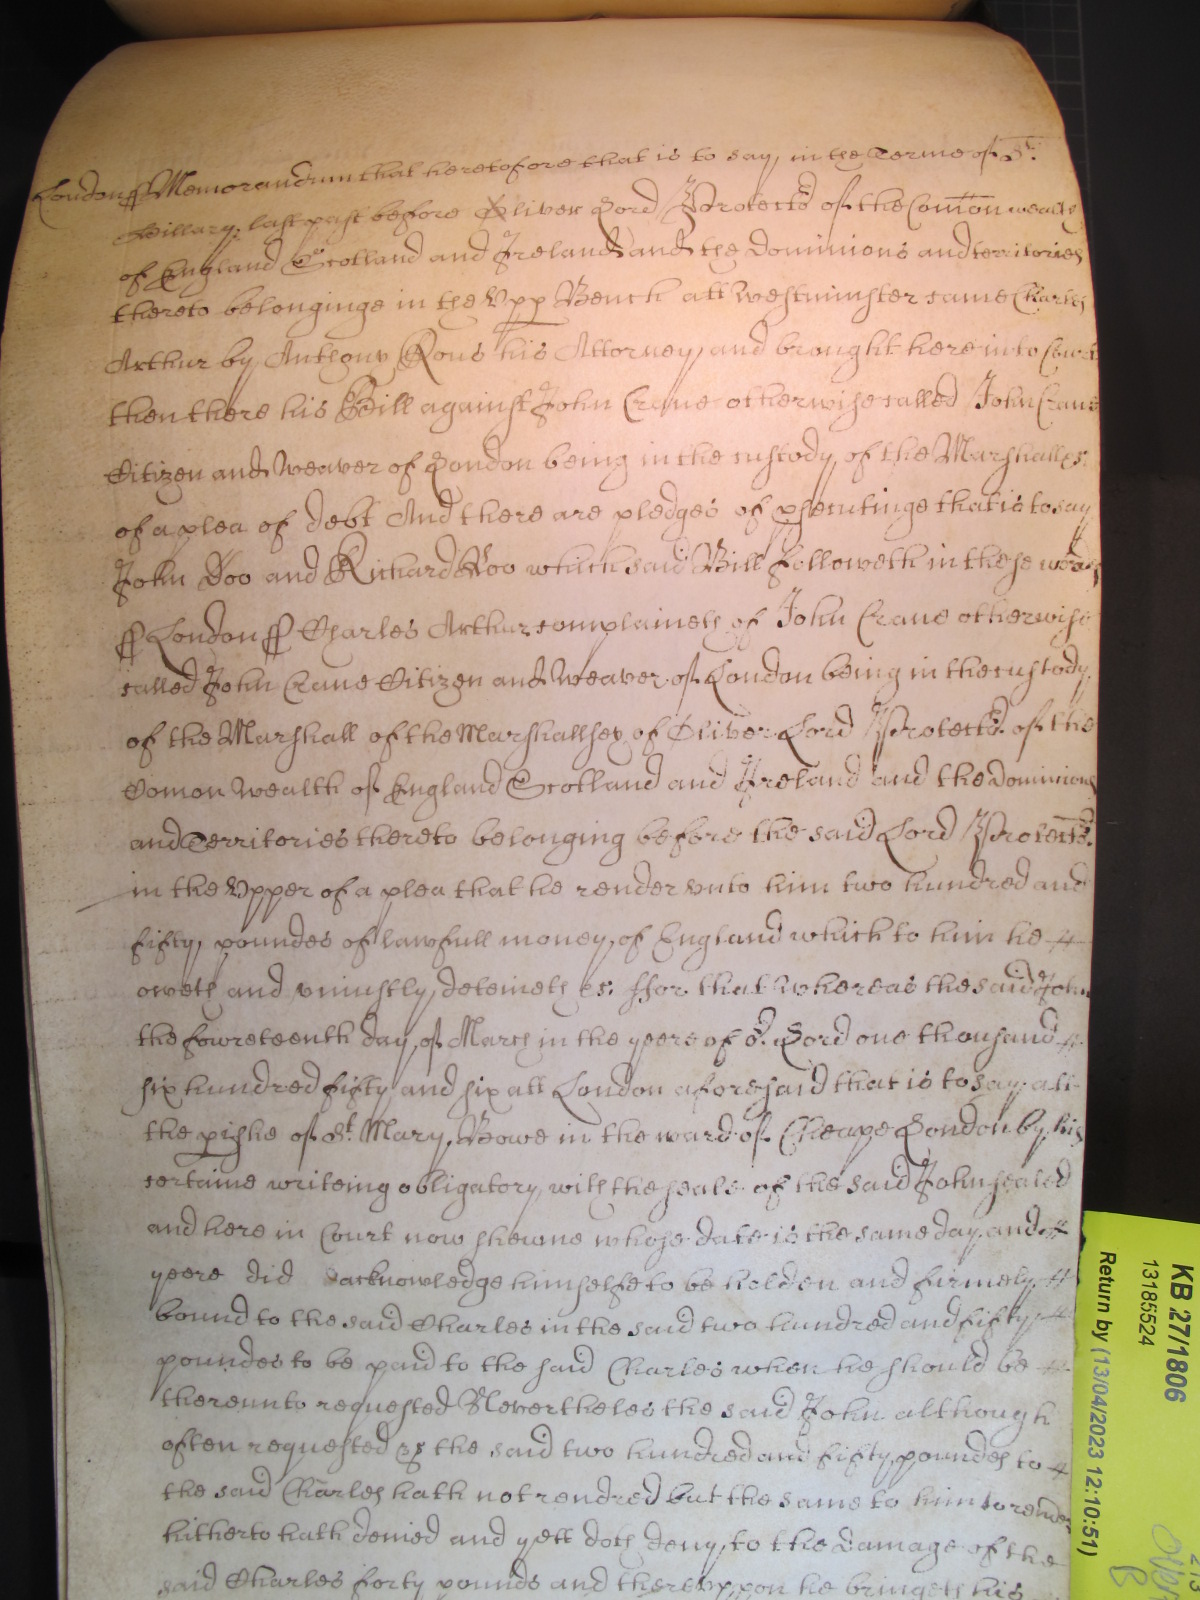 London ss Memorandum that heretofore that is to say in the Terme of St.
Hillary last past before Oliver Lord Protectr. of the Comon wealth
of England Scotland and Ireland and the Dominions and territories
thereto belonginge in the Upp Bench att Westminster came Charles
Arthur by Anthony Rous his Attorney, and brought here into Court
then there his Bill against John Crane otherwise called John Crane
Citizen and Weaver of London being in the custody of the Marshall &c.
of a plea of debt And there are pledges of psecutinge that is to say
John Doo and Richard Roo which said Bill followeth in these words
ss London ss Charles Arthur complaineth of John Crane otherwise
called John Crane Citizen and Weaver of London being in the custody
of the Marshall of the Marshallsey of Oliver Lord Protectr. of the
Comon Wealth of England Scotland and Ireland and the Dominions
and Territories thereto belonging before the said Lord Protectr.
in the Upper of a plea that he render unto him two hundred and
fifty poundes of lawfull money of England which to him he
oweth and uniustly deteineth &c. ffor that whereas the said John
the fowreteenth day of March in the yeere of or. Lord one thousand
six hundred fifty and six att London aforesaid that is to say att
the pishe of St. Mary Bowe in the ward of Cheape London by his
certaine writeing obligatory with the seale of the said John sealed
and here in Court now shewne whose date is the same day and
yeere did acknowledge himselfe to be holden and firmely
bound to the said Charles in the said two hundred and fifty
poundes to be paid to the said Charles when he should be
thereunto requested Neverthelesse the said John although
often requested &c the said two hundred and fifty poundes to
the said Charles hath not rendred but the same to him to render
hitherto hath denied and yett doth deny to the damage of the
said Charles forty pounds and thereuppon he bringeth his
KB 27/1806
13185524
Return by (13/04/2023 12:10:51)